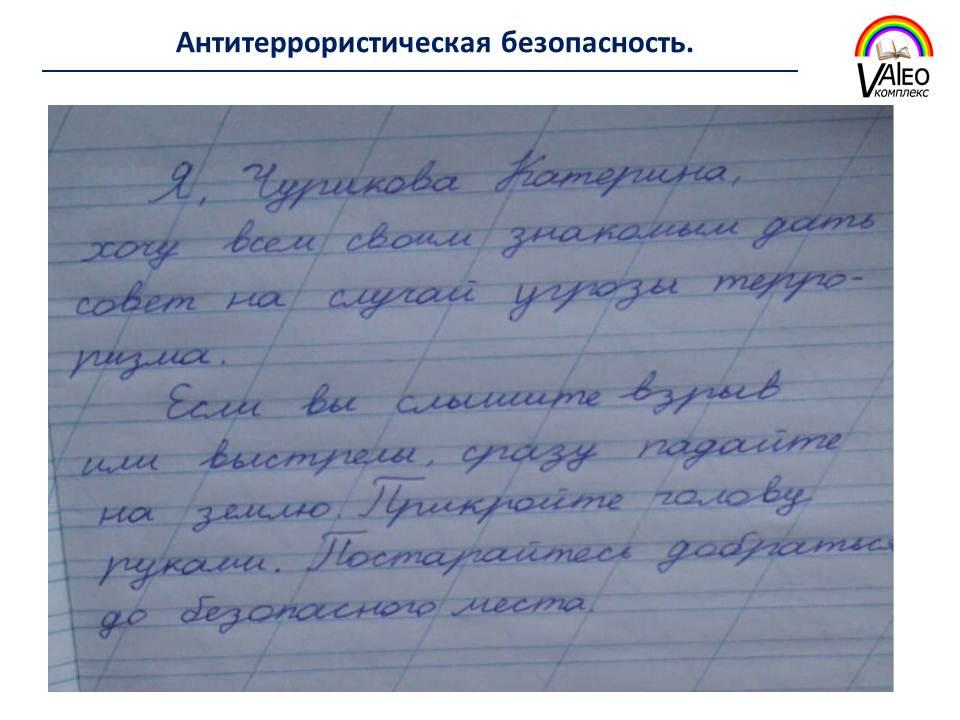 Антитеррористическая безопасность.
VAlEO
комплекс
Я, Чурикова Катерина,
хочу всем своим знакомым дать
совет на случай угрозы терро-
ризма.
Если вы слышите взрыв
или выстрелы, сразу падайте
на землю. Прикройте голову
руками. Постарайтесь добраться
до безопасного места.